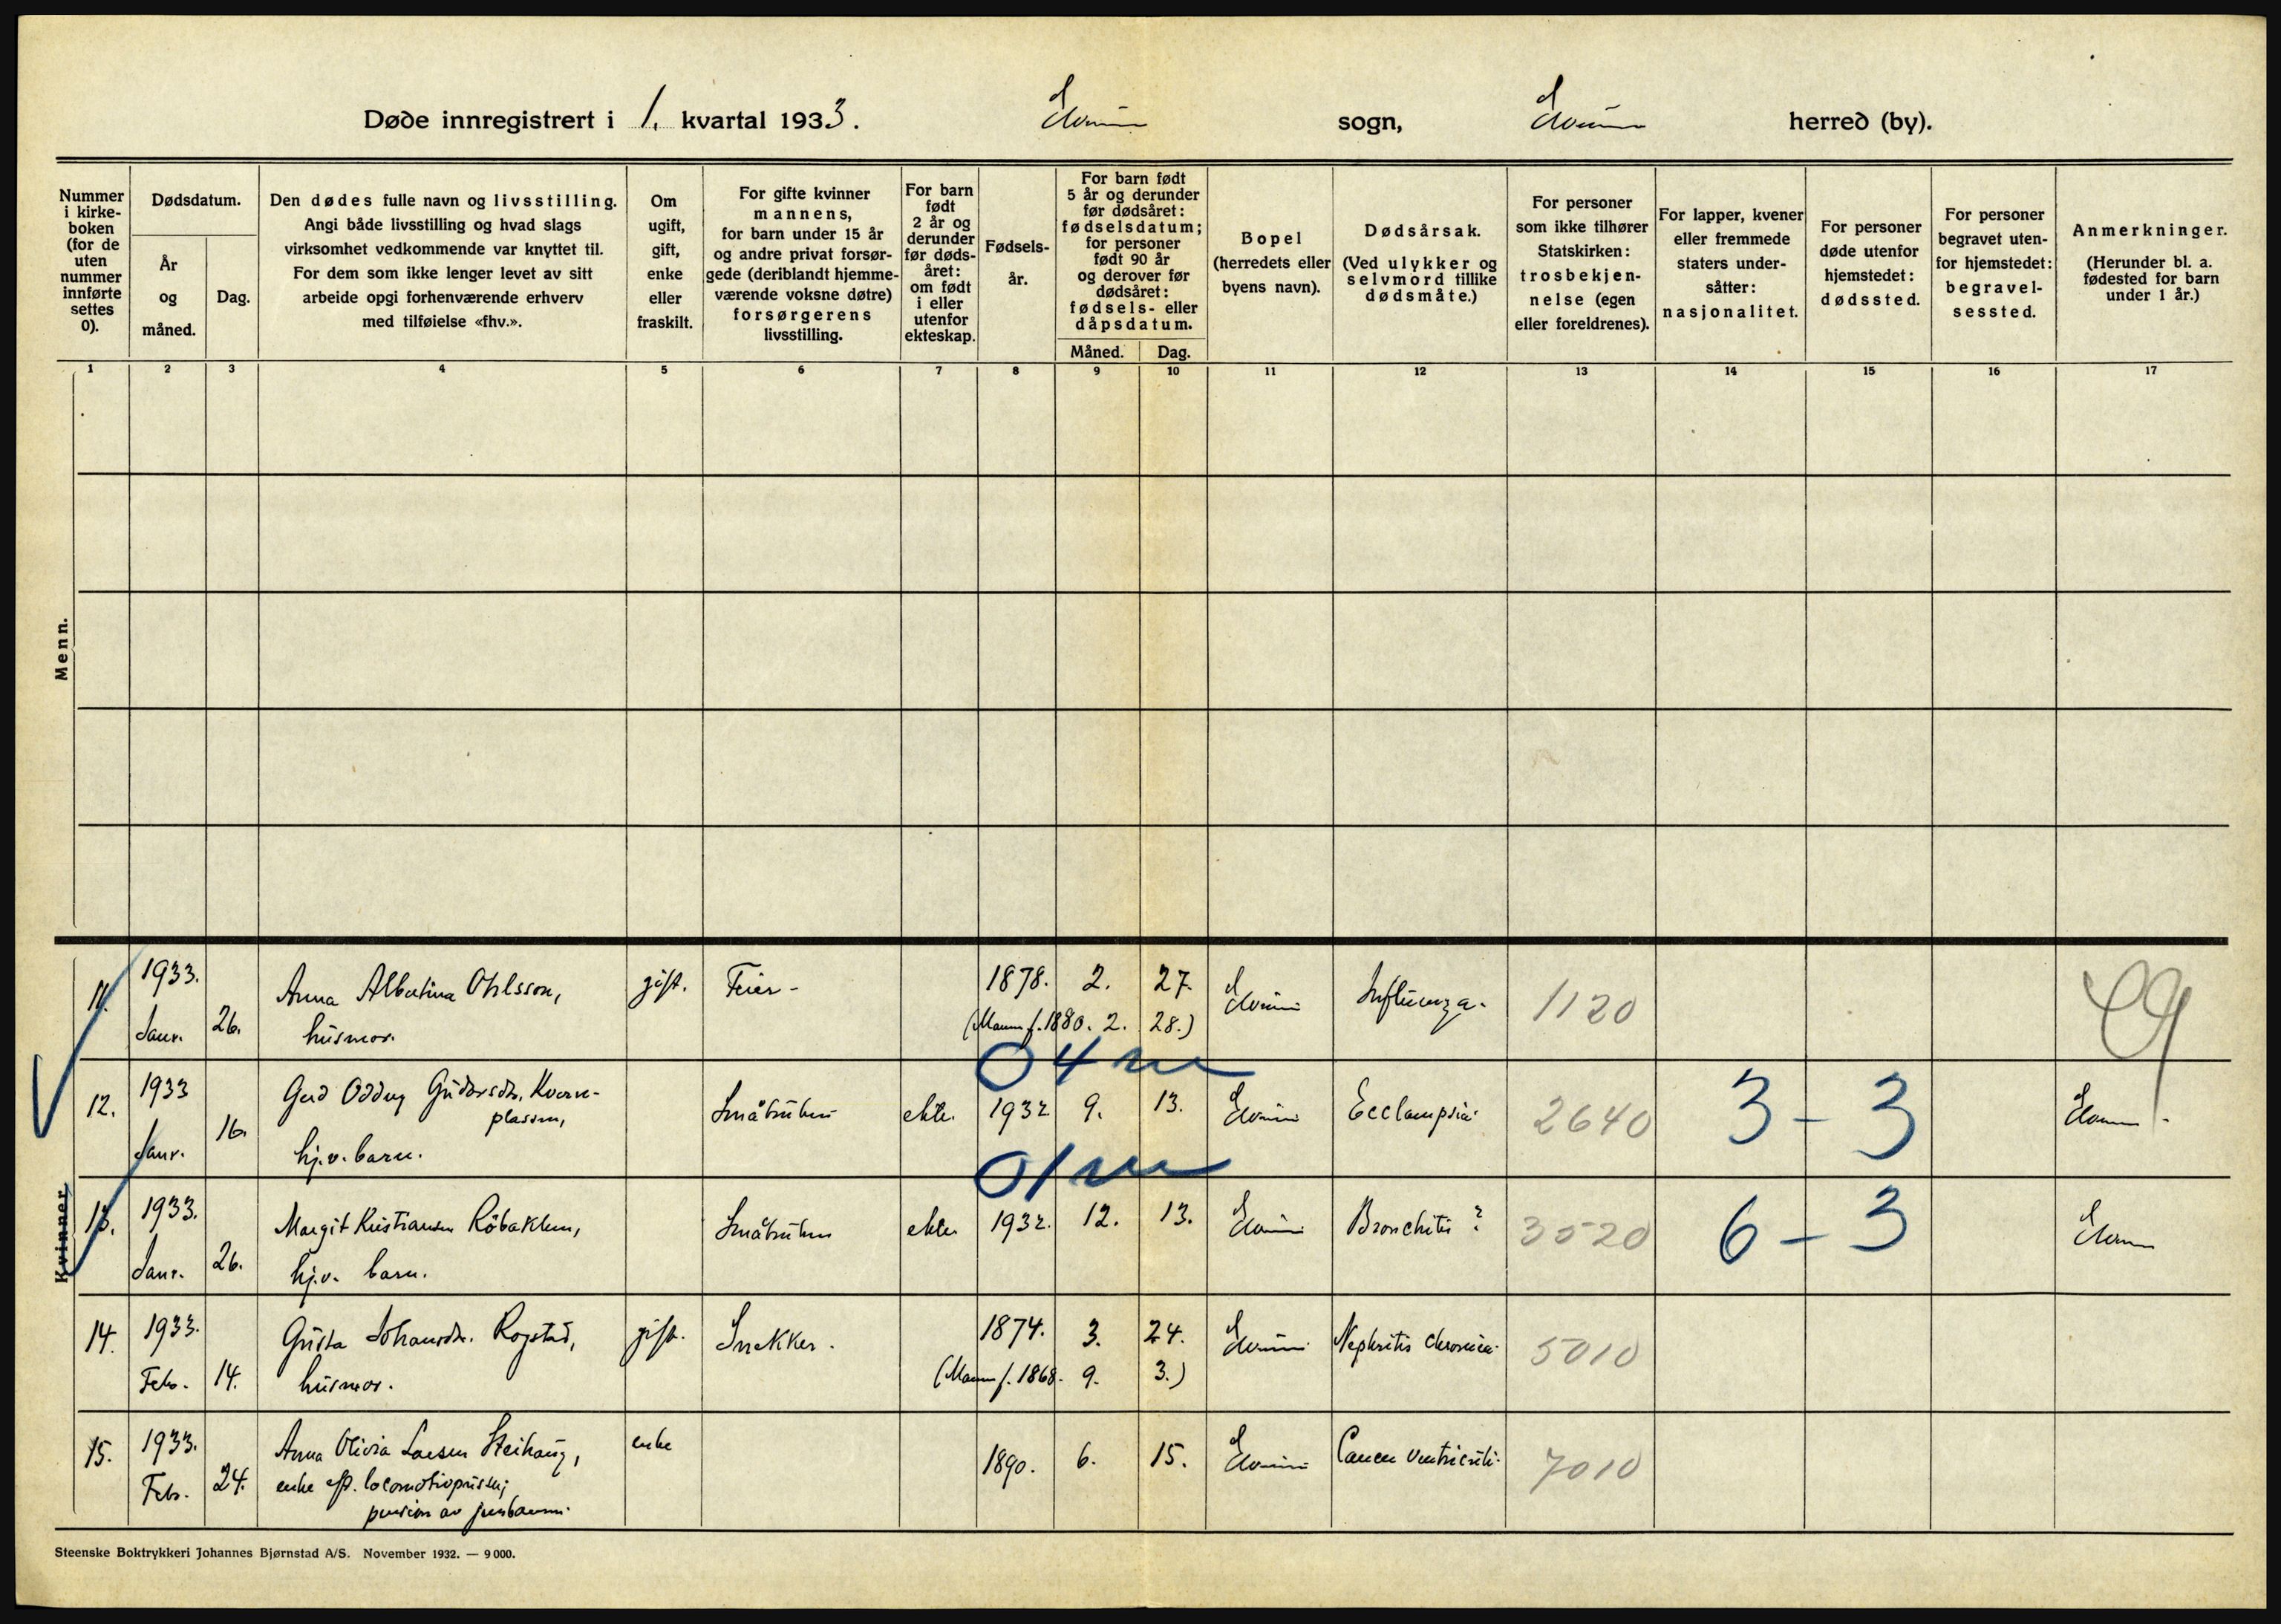 Døde innregistrert i 1. kvartal 1933. Elverum sogn, Elverum herred (by).
Nummer i kirkeboken (for de uten nummer innførte settes 0).
Dødsdatum.
År og måned.
Dag.
Den dødes fulle navn og livsstilling.
Angi både livsstilling og hvad slags
virksomhet vedkommende var knyttet til.
For dem som ikke lenger levet av sitt
arbeide opgi forhenværende erhverv
med tilføielse «fhv.».
Om ugift, gift, enke eller fraskilt.
For gifte kvinner
mannens,
for barn under 15 år
og andre privat forsør-
gede (deriblandt hjemme-
værende voksne døtre)
forsørgerens
livsstilling.
For barn født 2 år og derunder før døds-året: om født i eller utenfor ekteskap.
Fødsels-
år.
For barn født
5 år og derunder
før dødsåret:
fødselsdatum;
for personer
født 90 år
og derover før
dødsåret:
fødsels- eller
dåpsdatum.
Måned. Dag.
Bopel
(herredets eller
byens navn).
Dødsårsak.
(Ved ulykker og
selvmord tillike
dødsmåte.)
For personer
som ikke tilhører
Statskirken:
trosbekjen-
nelse (egen
eller foreldrenes).
For lapper, kvener
eller fremmede
staters under-
såtter:
nasjonalitet.
For personer
døde utenfor
hjemstedet:
dødssted.
For personer
begravet uten-
for hjemstedet:
begravel-
sessted.
Anmerkninger.
(Herunder bl. a.
fødested for barn
under 1 år.)
1 2 3 4 5 6 7 8 9 10 11 12 13 14 15 16 17
Menn.
Kvinner.
11. 1933. Janr. 26. Anna Albertina Ohlsson, gift. Feier - 1878. 2. 27. Influenza. 1120
husmor. (Mann f. 1880. 2. 28.)
04 m
12. 1933 Janr. 16. Gerd Oddny Gudarsdr. Kvern-
plassen,
hj.v. barn. Småbruker ekte. 1932 9. 13. Ecclampsia. 2640 3 - 3
01 m
13. 1933. Janr. 26. Margit Kristiansen Röbakken, Småbruker ekte 1932. 12. 13. Bronchitis ? 3520 6 - 3
hj.v. barn.
14. 1933. Febr. 14. Gusta Johansdr. Rogstad, gift. Snekker. 1874. 3. 24. Nephritis chronica. 5010
husmor. (Mann f. 1868. 9. 3.)
15. 1933. Febr. 24. Anna Olivia Larsen Steihaug, enke 1890. 6. 15. Cancer ventriculi. 7010
enke eft. locomotivpusser;
pension av jernbanen.
Steenske Boktrykkeri Johannes Bjørnstad A/S. November 1932. — 9000.